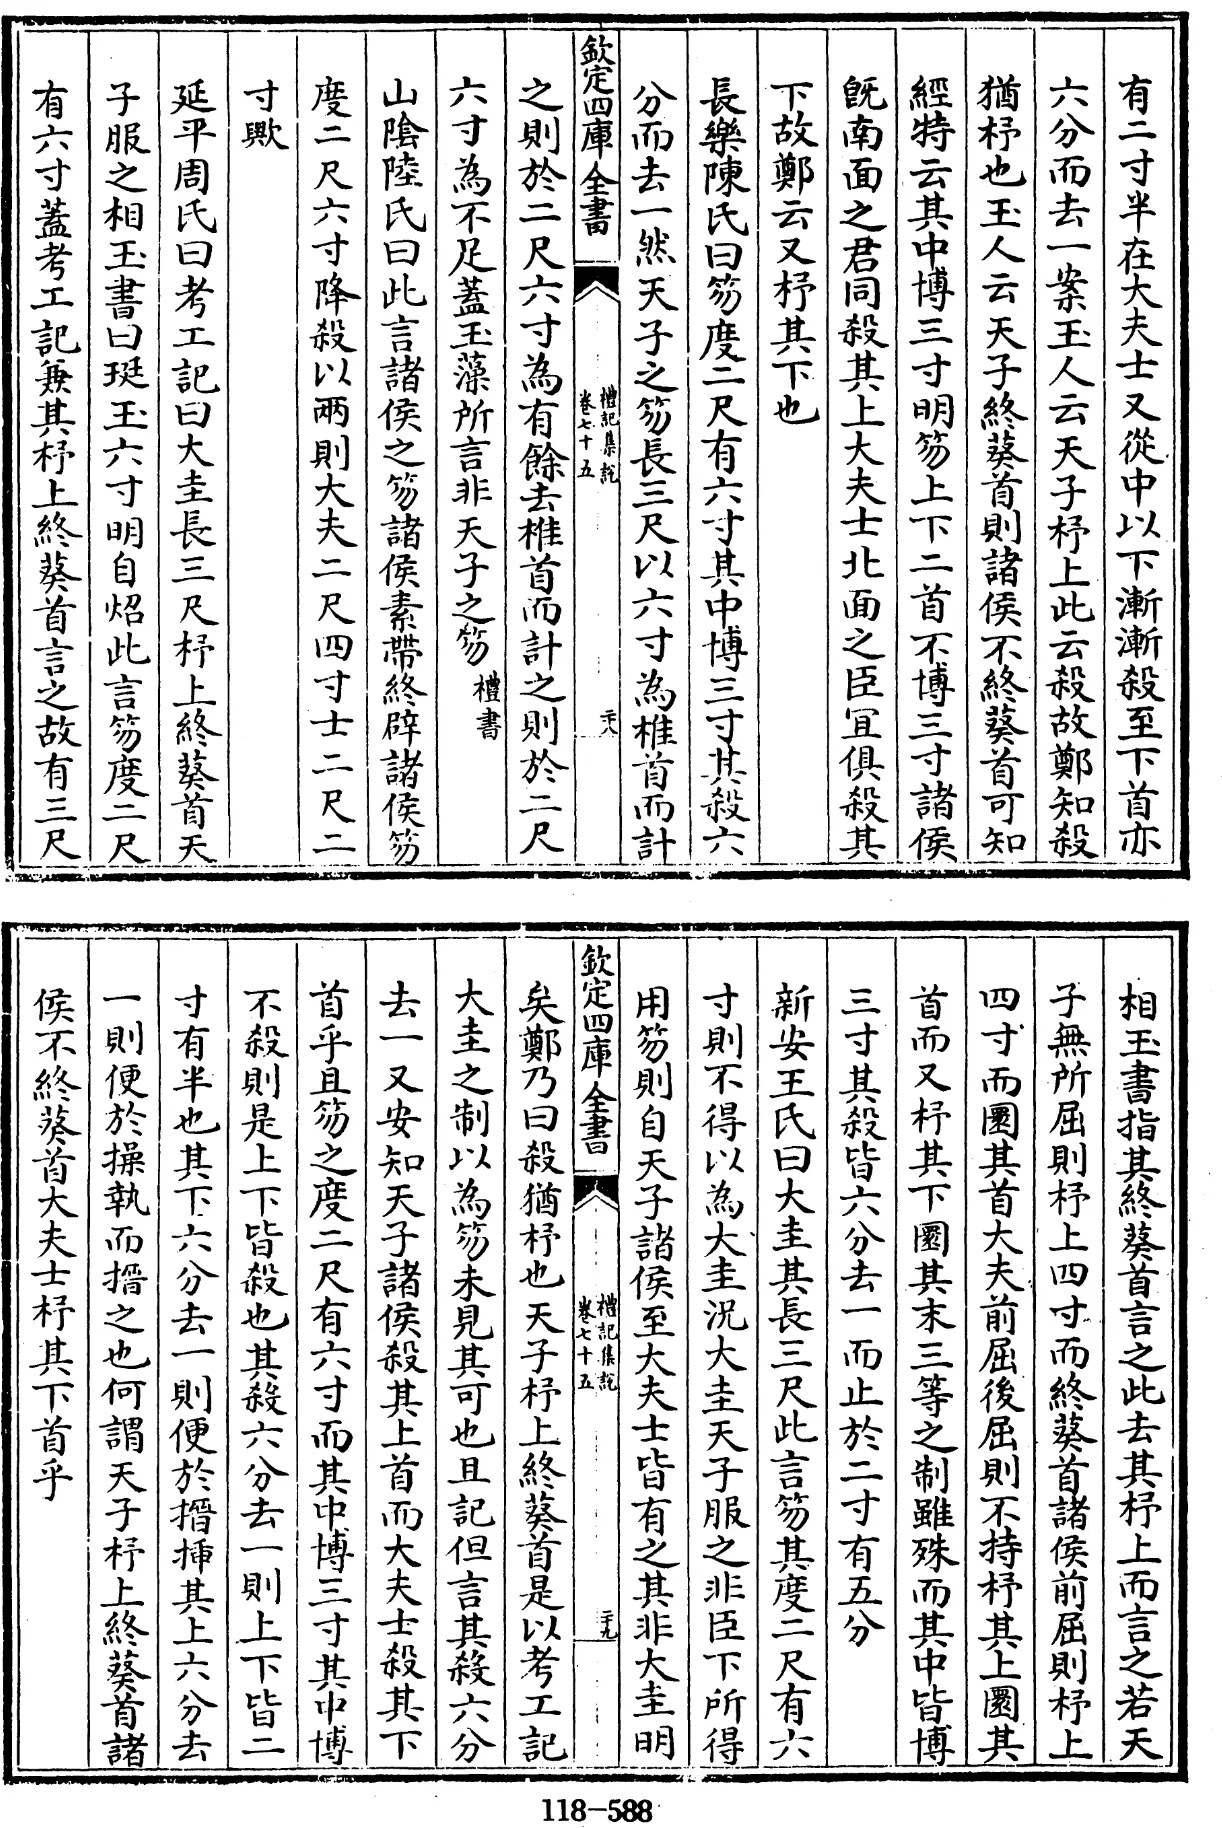 有二寸半在大夫士又從中以下漸漸殺至下首亦
六分而去一案玉人云天子杼上此云殺故鄭知殺
猶杼也玉人云天子終葵首則諸侯不終葵首可知
經特云其中博三寸明笏上下二首不博三寸諸侯
旣南面之君同殺其上大夫士北面之臣冝俱殺其
下故鄭云又杼其下也
長樂陳氏曰笏度二尺有六寸其中博三寸其殺六
分而去一然天子之笏長三尺以六寸為椎首而計
欽定四庫全書
禮記集說
卷七十五
二十八
之則於二尺六寸為有餘去椎首而計之則於二尺
六寸為不足蓋玉藻所言非天子之笏禮書
山陰陸氏曰此言諸侯之笏諸侯素帶終辟諸侯笏
度二尺六寸降殺以兩則大夫二尺四寸士二尺二
寸歟
延平周氏曰考工記曰大圭長三尺杼上終葵首天
子服之相玉書曰珽玉六寸明自炤此言笏度二尺
有六寸蓋考工記兼其杼上終葵首言之故有三尺
相玉書指其終葵首言之此去其杼上而言之若天
子無所屈則杼上四寸而終葵首諸侯前屈則杼上
四寸而圜其首大夫前屈後屈則不持杼其上圜其
首而又杼其下圜其末三等之制雖殊而其中皆博
三寸其殺皆六分去一而止於二寸有五分
新安王氏曰大圭其長三尺此言笏其度二尺有六
寸則不得以為大圭況大圭天子服之非臣下所得
用笏則自天子諸侯至大夫士皆有之其非大圭明
欽定四庫全書
禮記集說
卷七十五
二十九
矣鄭乃曰殺猶杼也天子杼上終葵首是以考工記
大圭之制以為笏未見其可也且記但言其殺六分
去一又安知天子諸侯殺其上首而大夫士殺其下
首乎且笏之度二尺有六寸而其中博三寸其中博
不殺則是上下皆殺也其殺六分去一則上下皆二
寸有半也其下六分去一則便於搢揷其上六分去
一則便於操執而搢之也何謂天子杼上終葵首諸
侯不終葵首大夫士杼其下首乎
118-588